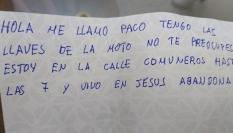 HOLA ME LLAMO PACO TENGO LAS
LLAVES DE LA MOTO NO TE PREOCUPES
ESTOY EN LA CALLE COMUNEROS HAST
LAS 7 Y VIVO EN JESUS ABANDONA